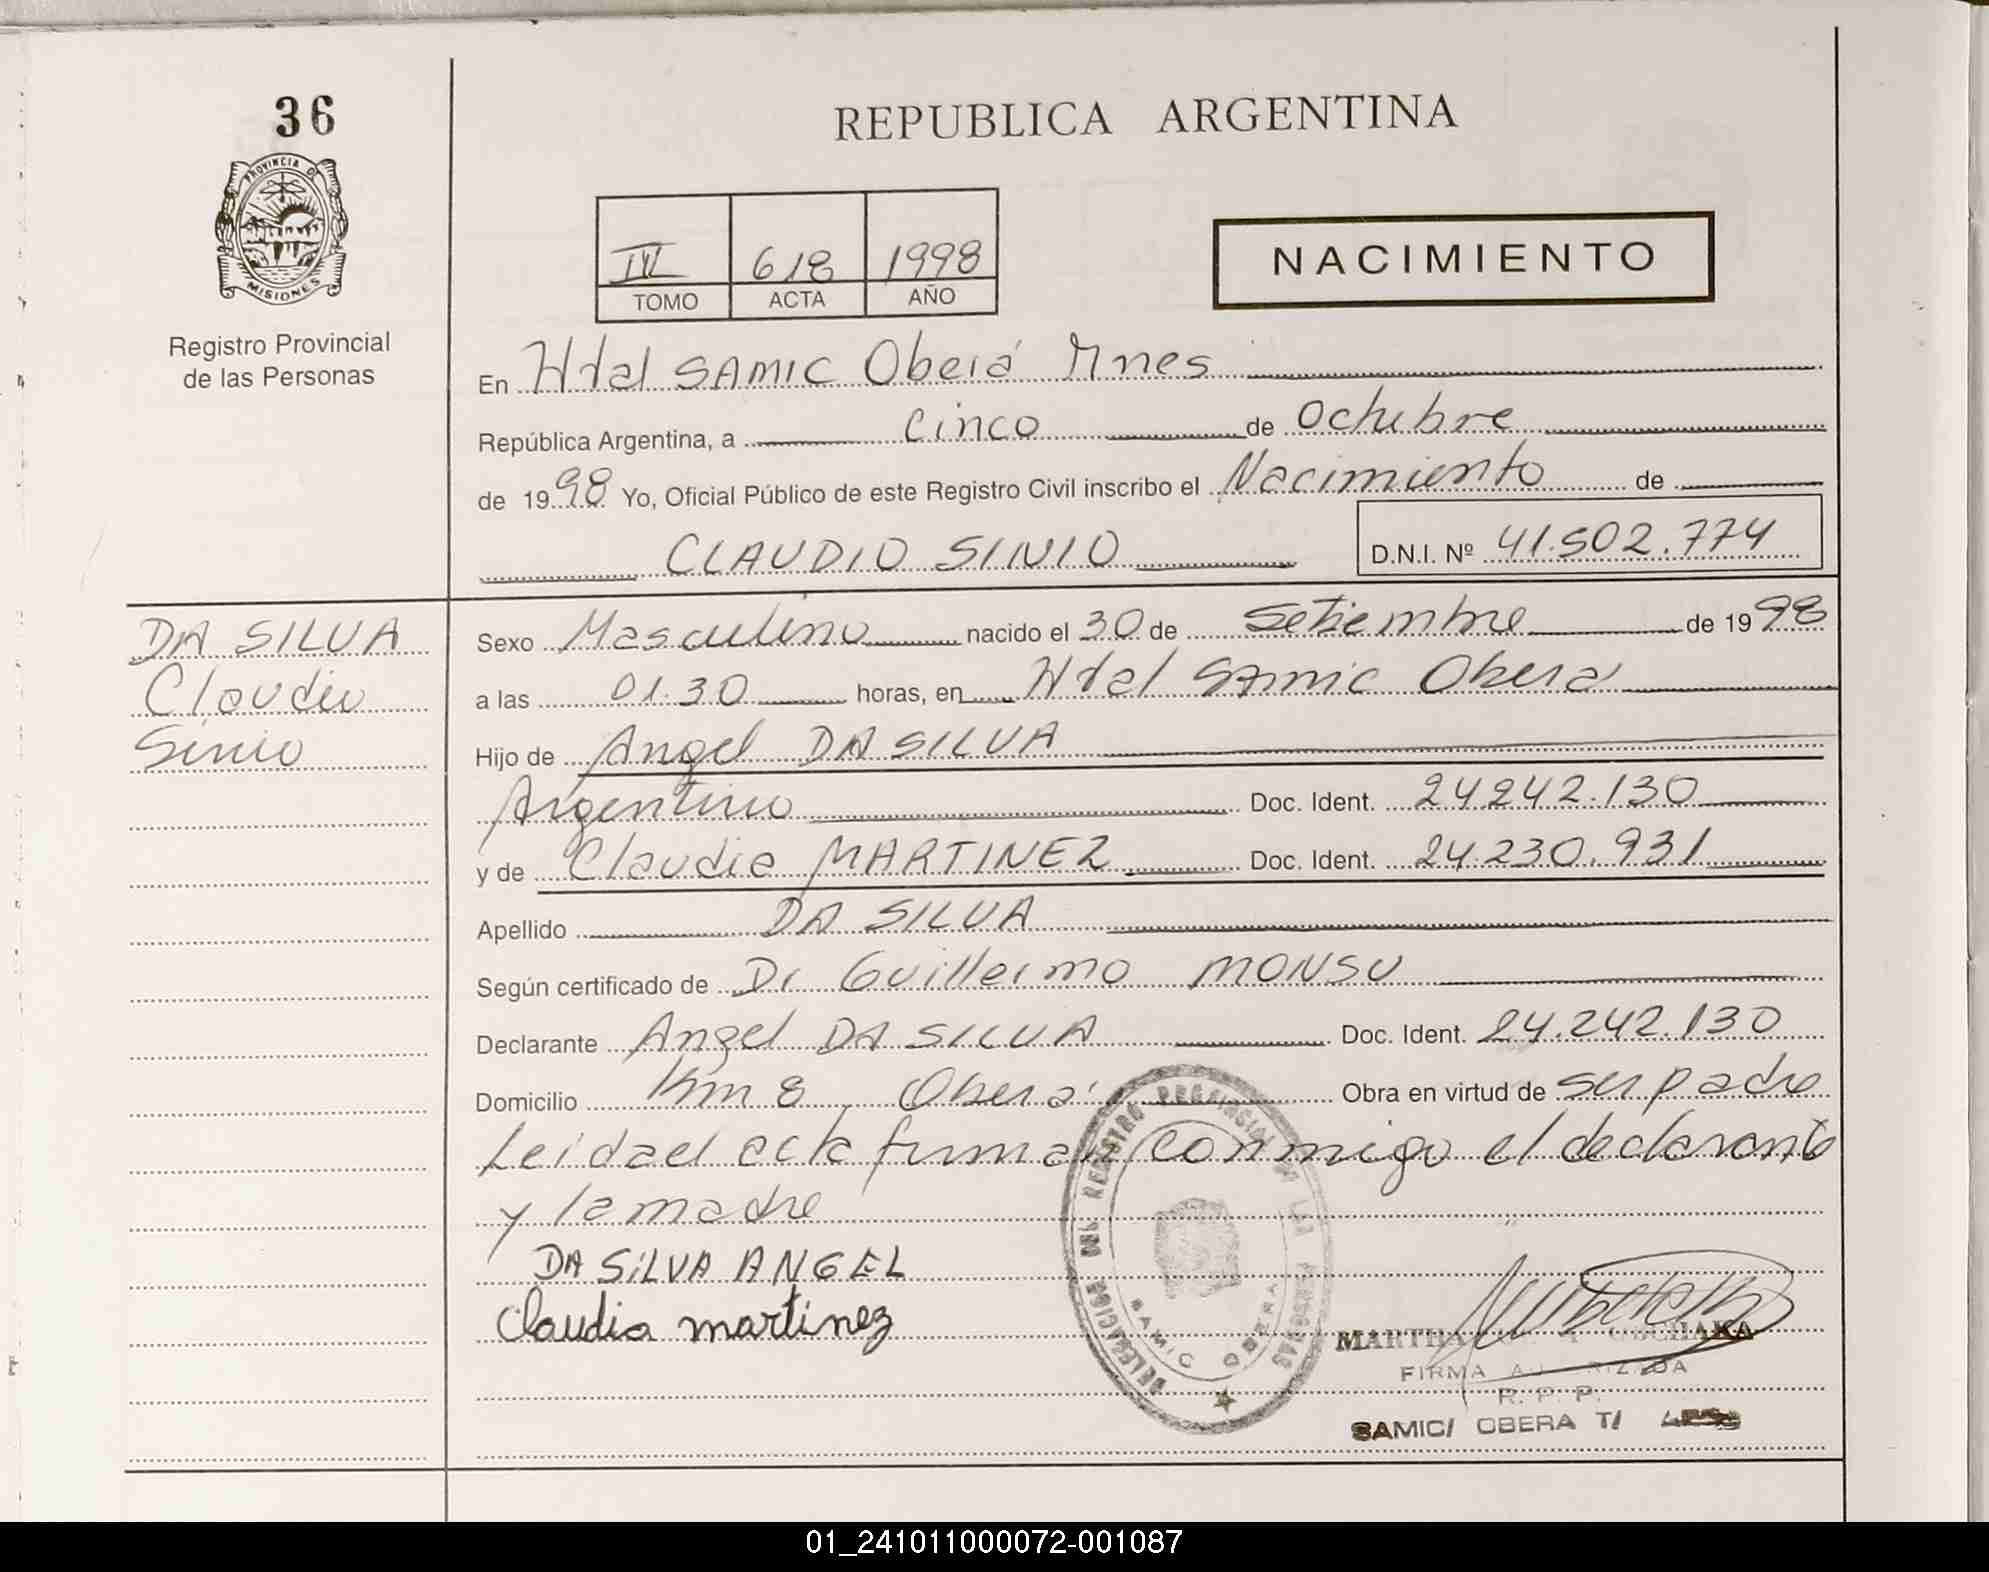 36
PROVINCIA DE
MISIONES
Registro Provincial
de las Personas
REPUBLICA ARGENTINA
IV 618 1998
TOMO ACTA AÑO
NACIMIENTO
En Htal SAMIC Oberá Mnes
República Argentina, a cinco de Octubre
de 1998 Yo, Oficial Público de este Registro Civil inscribo el Nacimiento de
CLAUDIO SINIO D.N.I. Nº 41.502.774
DA SILVA
Claudio
Sinio
Sexo Masculino nacido el 30 de Setiembre de 1998
a las 01.30 horas, en Htal SAMIC Oberá
Hijo de Angel DA SILVA
Argentino Doc. Ident. 24242.130
y de Claudia MARTINEZ Doc. Ident. 24.230.931
Apellido DA SILVA
Según certificado de Dr Guillermo MONSU
Declarante Angel DA SILVA Doc. Ident. 24.242.130
Domicilio Km 8 Oberá Obra en virtud de ser padre
Leida el acta firman conmigo el declarante
y la madre
DA SILVA ANGEL
Claudia martinez
DELEGACION DEL REGISTRO PROVINCIAL DE LAS PERSONAS
SAMIC OBERA
MARTHA
FIRMA
R. P. P.
SAMIC/ OBERA T/
01_241011000072-001087